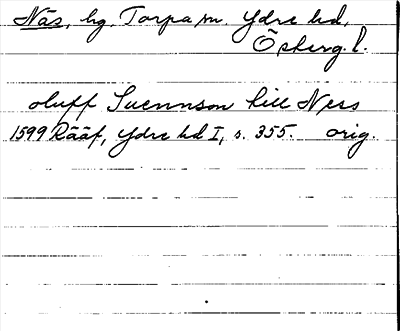 Näs, hg. Torpa sn. Ydre hd,
Östergl.
oluff Suennson till Ness
1599 Rääf, Ydre hd I, s. 355. orig.